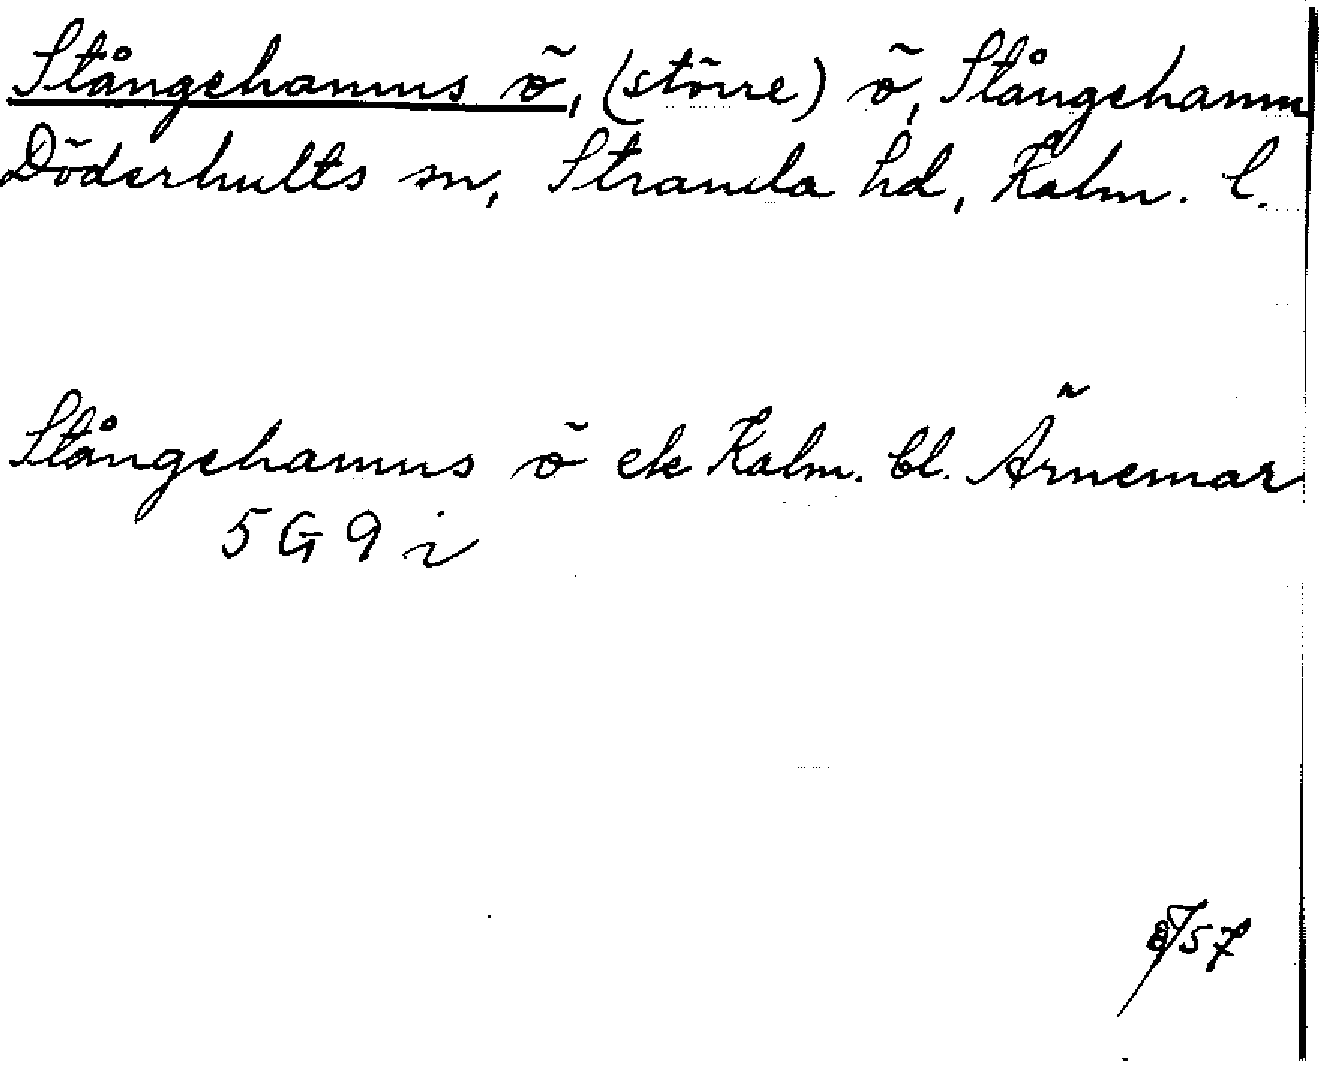 Stångehamns ö, (större) ö, Stångehamn
Döderhults sn, Stranda hd, Kalm. l.
Stångehamns ö ek Kalm. bl. Ärnemar
5 G 9 i
57